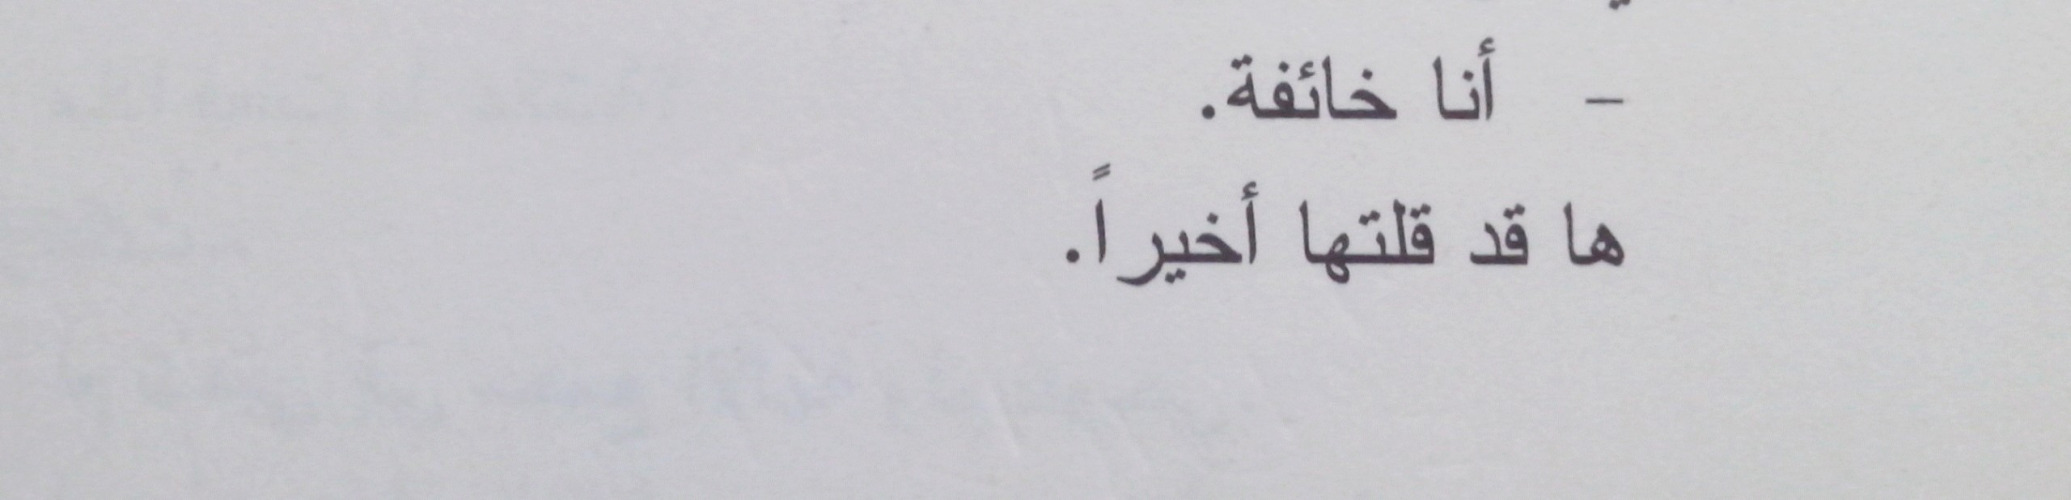 – أنا خائفة.
ها قد قلتها أخيراً.